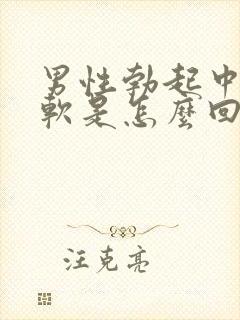 男性勃起中
軟是怎麼回
汪克亮